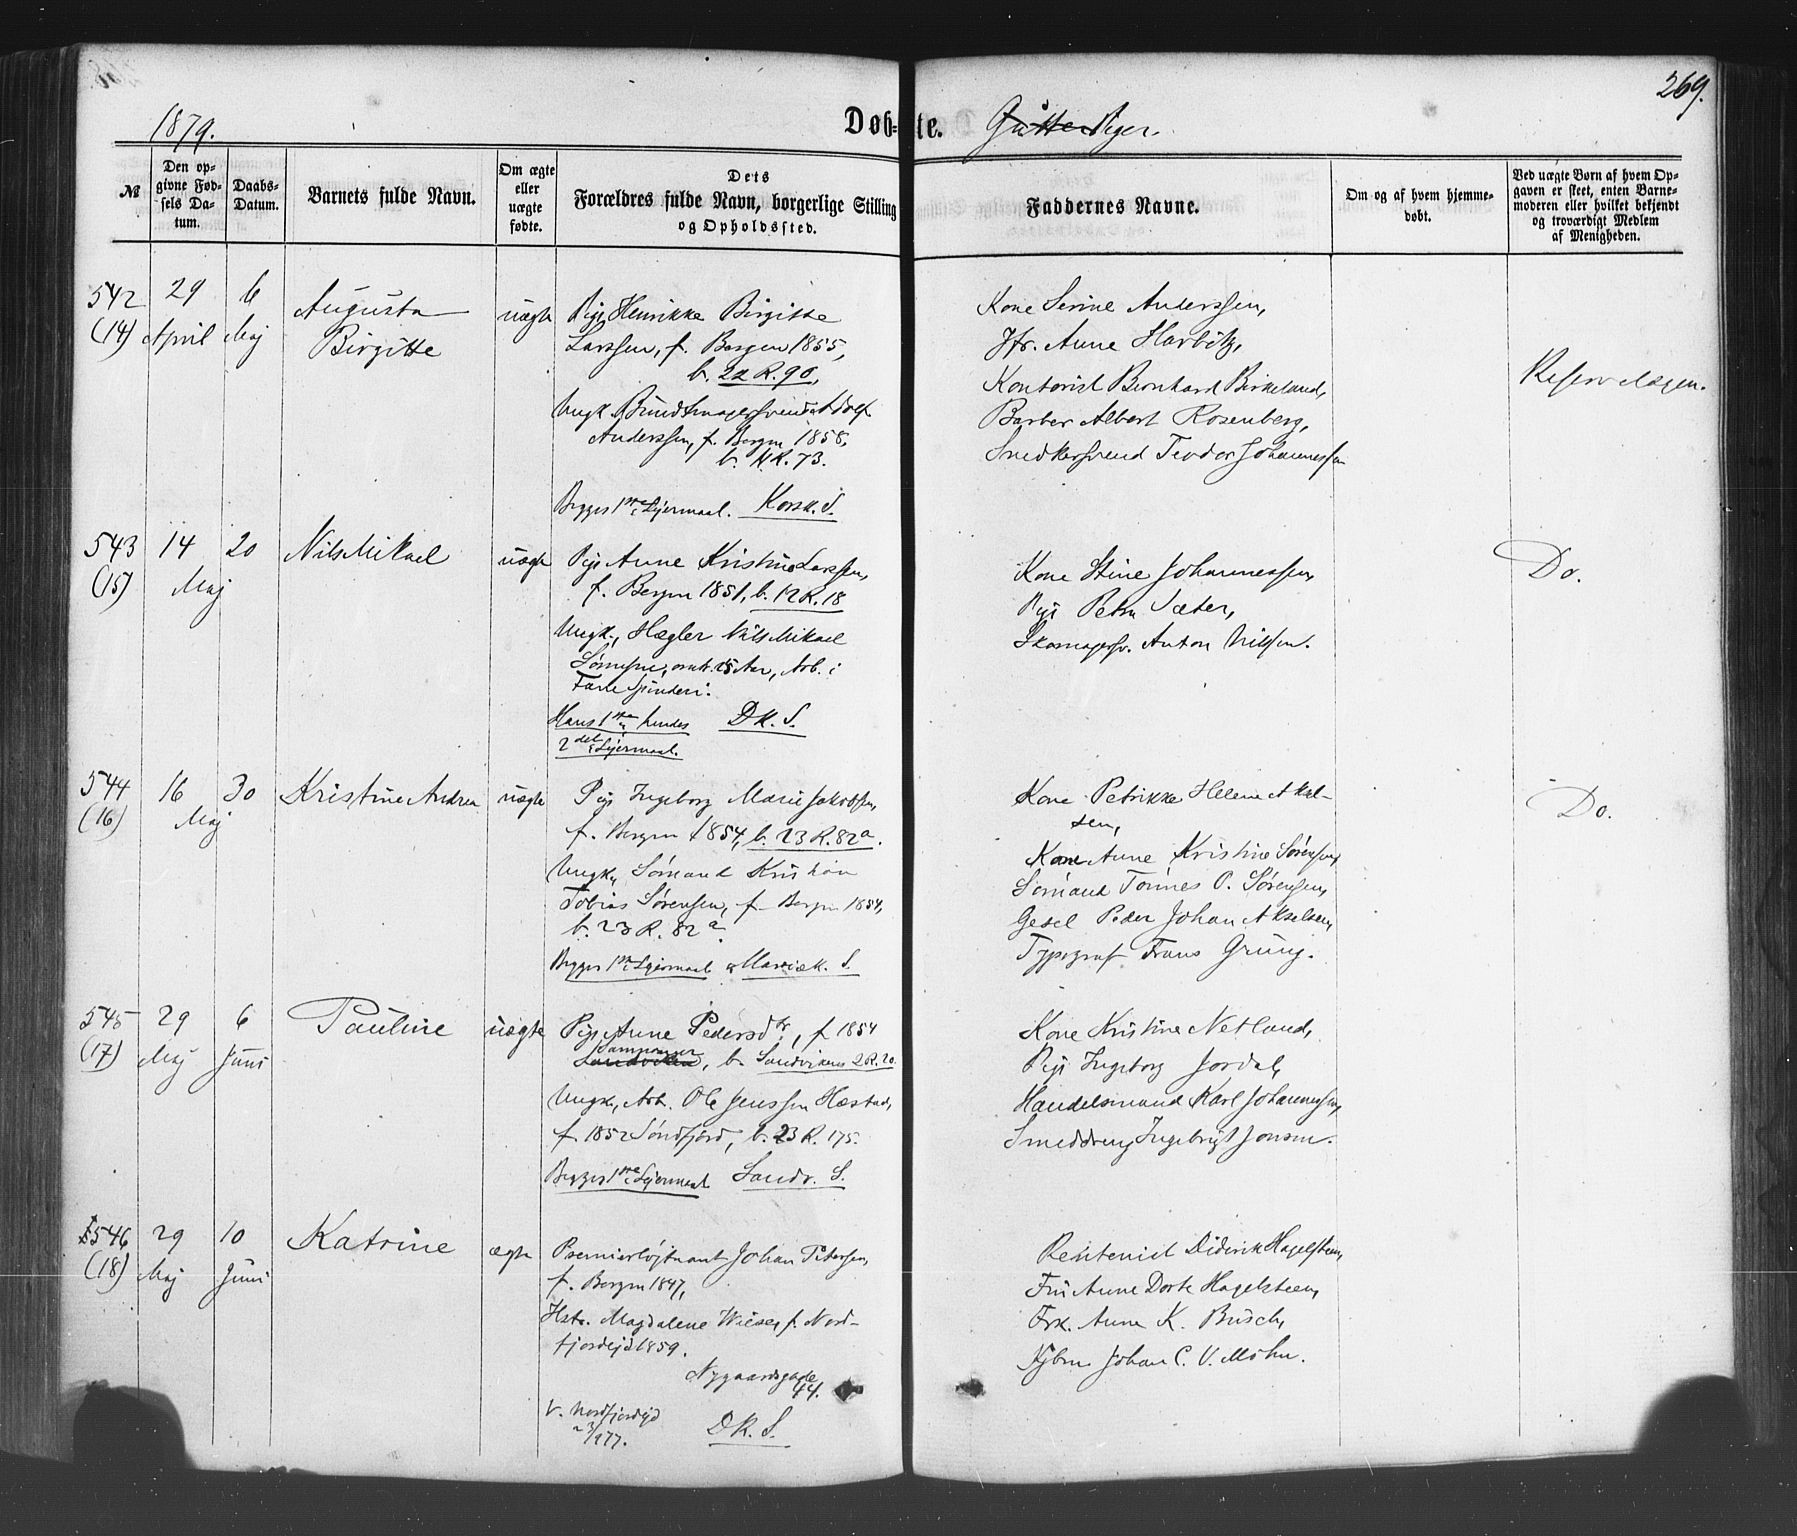 269.
1879.
Døb-te. Gutter Piger.
№
Den opgivne Fødsels Datum.
Daabs-Datum.
Barnets fulde Navn.
Om ægte eller uægte fødte.
Dets Forældres fulde Navn, borgerlige Stilling og Opholdssted.
Faddernes Navne.
Om og af hvem hjemmedøbt.
Ved uægte Børn af hvem Opgaven er skeet, enten Barnemoderen eller hvilket bekjendt og troværdigt Medlem af Menigheden.
542
(14)
29 April
6 Maj
Augusta
Birgitte
uægte
Pige Henrikke Birgitte
Larssen, f. Bergen 1855,
b. 22 R. 90,
Ungk. Bundtmagersvend Adolf
Anderssen, f. Bergen 1858,
b. 11 R. 73.
Begges 1ste Lejermaal. Korsk. S.
Kone Serine Anderssen,
Jfr. Anne Harbitz,
Kontorist Bernhard Birkeland,
Barber Albert Rosenberg,
Snedkersvend Teodor Johannessen
543
(15)
14 Maj
20
Nils Mikael
uægte
Pige Anne Kristine Larssen,
f. Bergen 1851, b. 12 R. 18
Ungk., Hægler Nils Mikael
omtr. 25 Aar, Arb. i
Hans 1ste hendes D K. S.
2det Lejermaal.
Kone Stine Johannessen,
Pige Petra Sæter,
Skomagersv. Anton Nilssen.
Do.
544
(16)
16 Maj
30
Kristine Andrea
uægte
Pige Ingeborg Marie Jakobsen,
f. Bergen 1854, b. 23 R. 82a.
Ungk., Sømand Kristian
Tobias Sørensen, f. Bergen 1854,
b. 23 R. 82a.
Begges 1ste Lejermaal Mariæk. S.
Kone Petrikke Helene Aksel-
sen,
Kone Anne Kristine Sørensen,
Sømand Tønnes P. Sørensen,
Gesel Peder Johan Akselsen,
Typograf Frans Grung.
Do.
545
(17)
29 Maj
6 Juni
Pauline
uægte
Pige Anne Pedersdtr, f 1854
Sandviken, b. Sandvikens 2 R. 20.
Ungk., Arb. Ole Jenssen Hæstad,
f. 1852 Søndfjord, b. 23 R. 175.
Begges 1ste Lejermaal Sandv. S.
Kone Kristine Netland,
Pige Ingeborg Jordal,
Handelsmand Karl Johannessen,
Smeddreng Ingebrigt Jonsen.
546
(18)
29 Maj
10 Juni
Katrine
ægte
Premierløjtnant Johan Petersen,
f. Bergen 1847,
Hstr. Magdalene Wiese, f. Nord-
fjordejd 1859.
Nygaardsgade
44.
V. Nordfjordejd
D K. S.
Rentenist Diderik Hagelsteen,
Fru Anne Dorte Hagelsteen,
Frk. Anne K. Busch,
Johan C. V. Mohn.